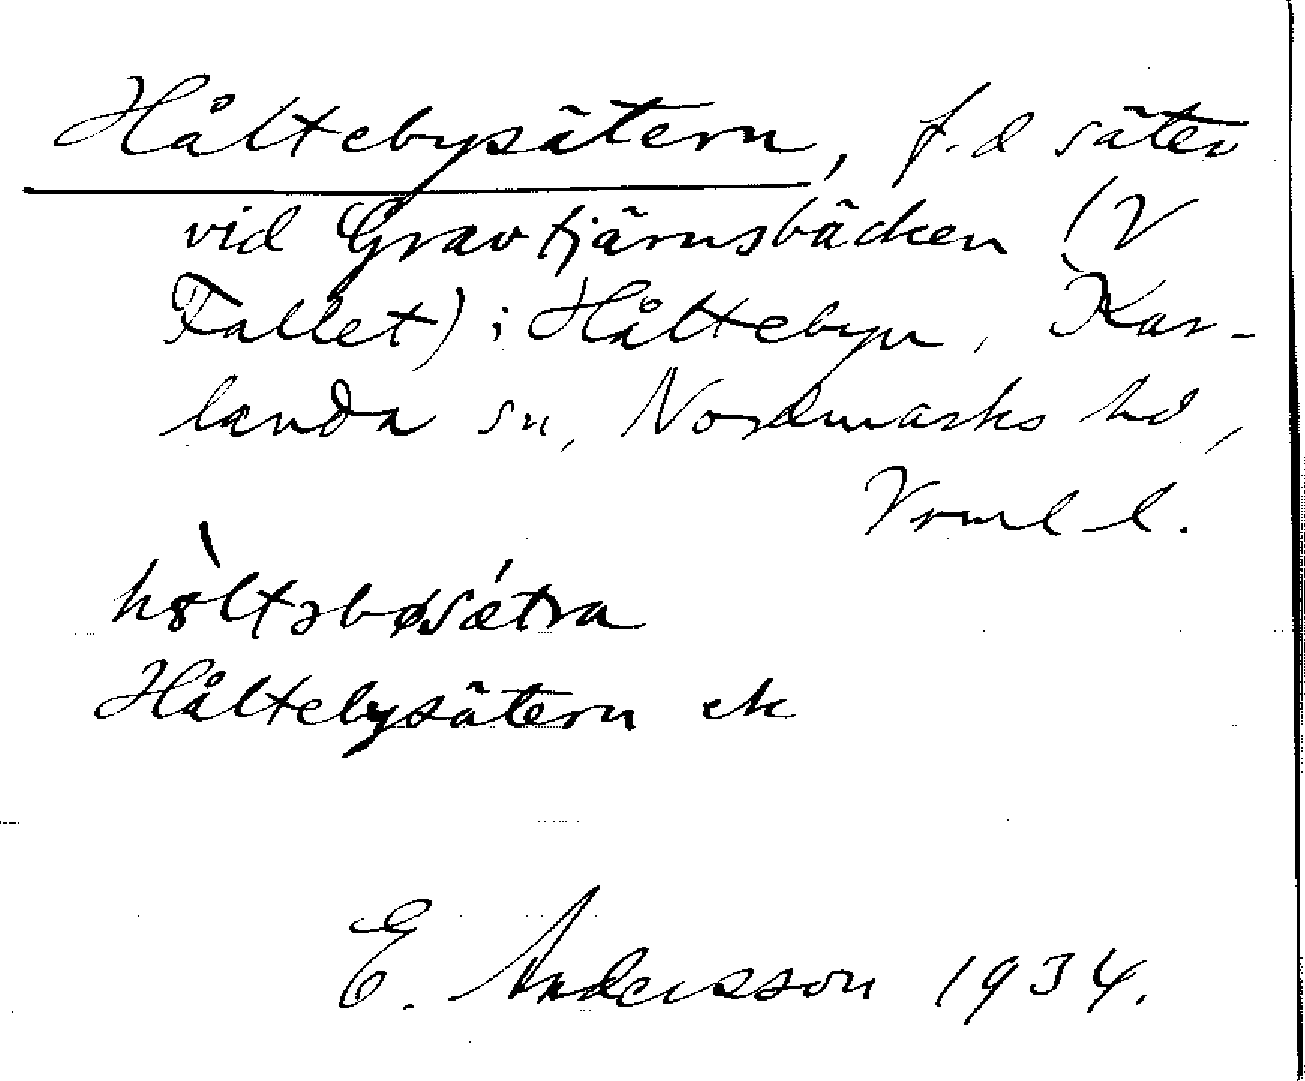 Håltebysätern, f.d säter
vid Gravtjärnsbäcken (V
Fallet) i Håltebyn, Kar-
landa sn, Nordmarks hd,
Vrml l.
hòltəbøsǽtra
Håltebysätern ek
E. Andersson 1934.